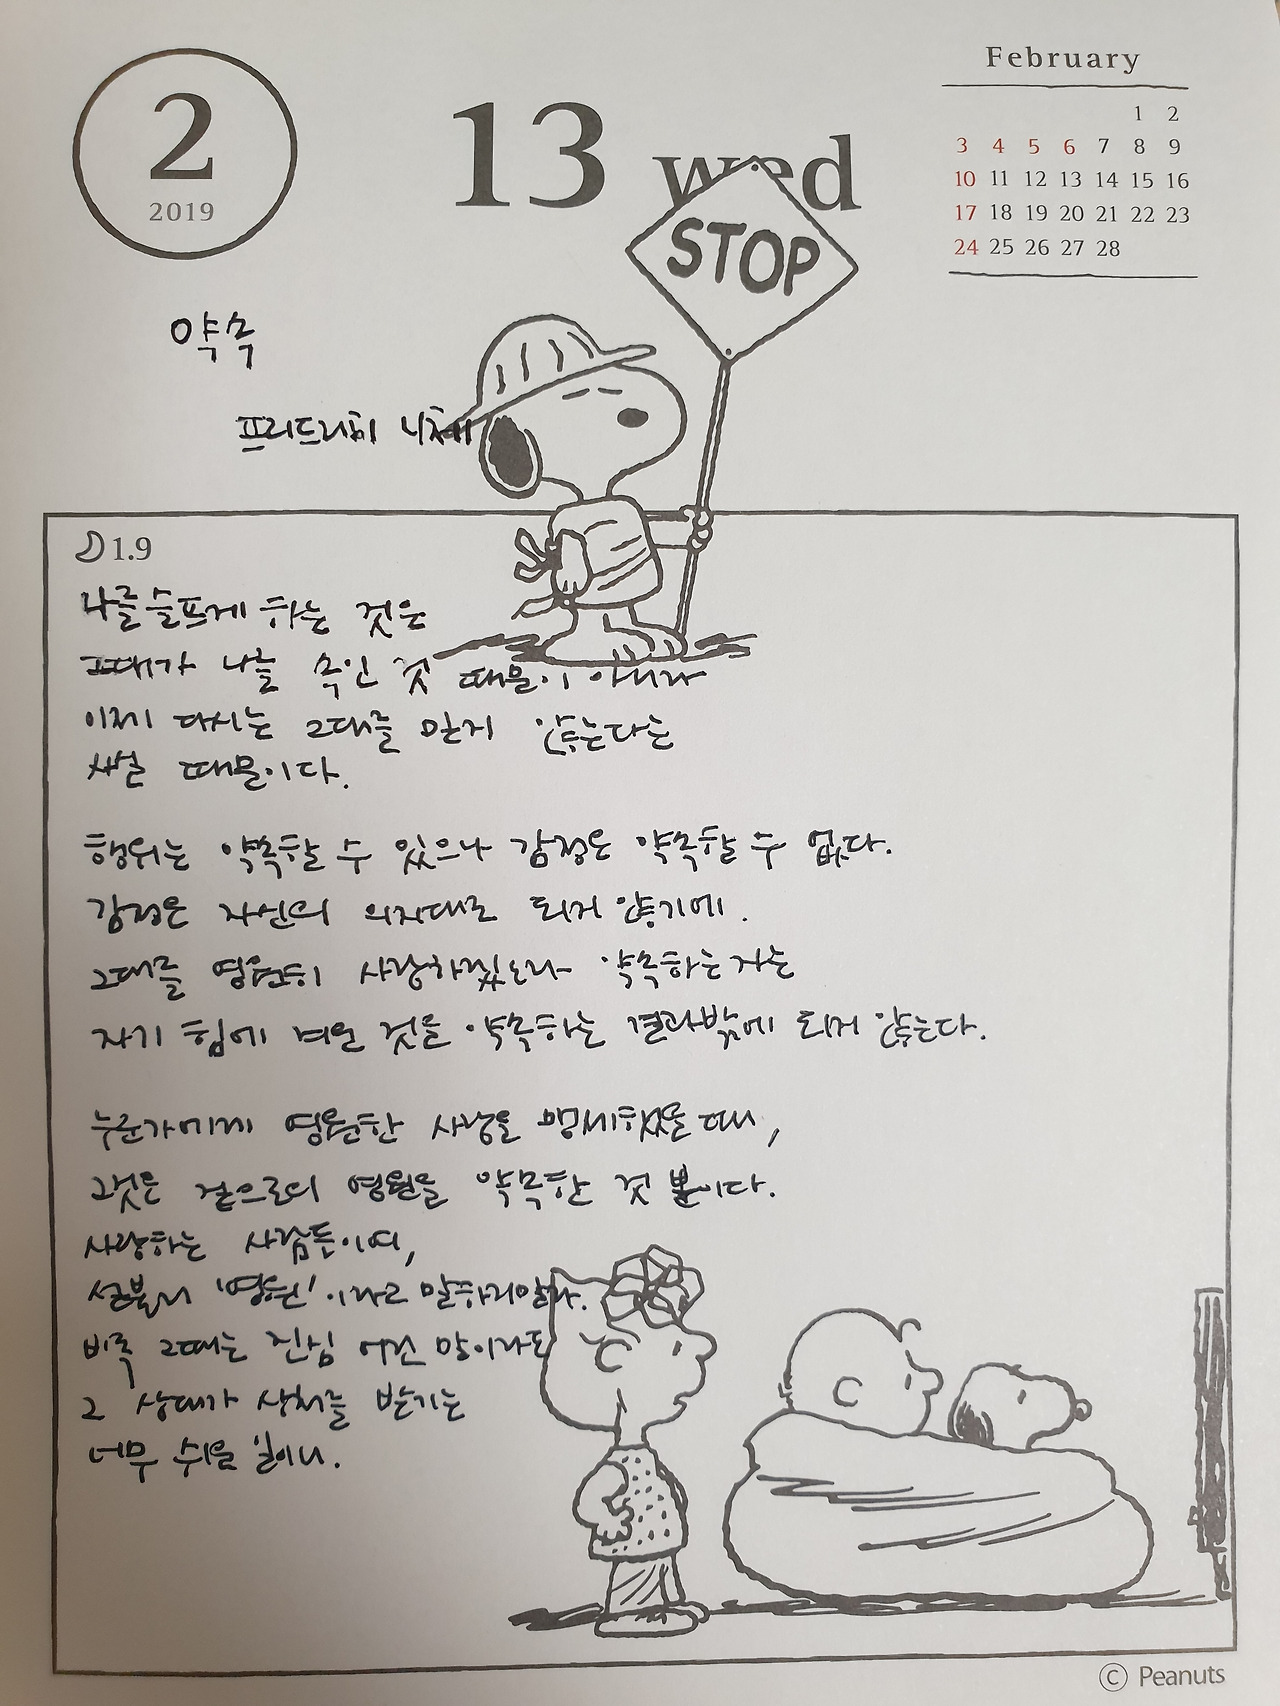 2
2019
13 wed
February
1 2
3 4 5 6 7 8 9
10 11 12 13 14 15 16
17 18 19 20 21 22 23
24 25 26 27 28
STOP
약속
프리드리히 니체
1.9
나를 슬프게 하는 것은
그대가 나를 속인 것 때문이 아니라
이제 다시는 그대를 믿지 않는다는
사실 때문이다.
행위는 약속할 수 있으나 감정은 약속할 수 없다.
감정은 자신의 의지대로 되지 않기에.
그대를 영원히 사랑하겠노라 약속하는 자는
자기 힘에 겨운 것을 약속하는 결과밖에 되지 않는다.
누군가에게 영원한 사랑을 맹세했을 때,
그것은 겉으로의 영원을 약속한 것 뿐이다.
사랑하는 사람들이여,
섣불리 '영원'이라고 말하지말라.
비록 그때는 진심 어린 말이라도
그 상대가 상처를 받기는
너무 쉬울 일이니.
© Peanuts